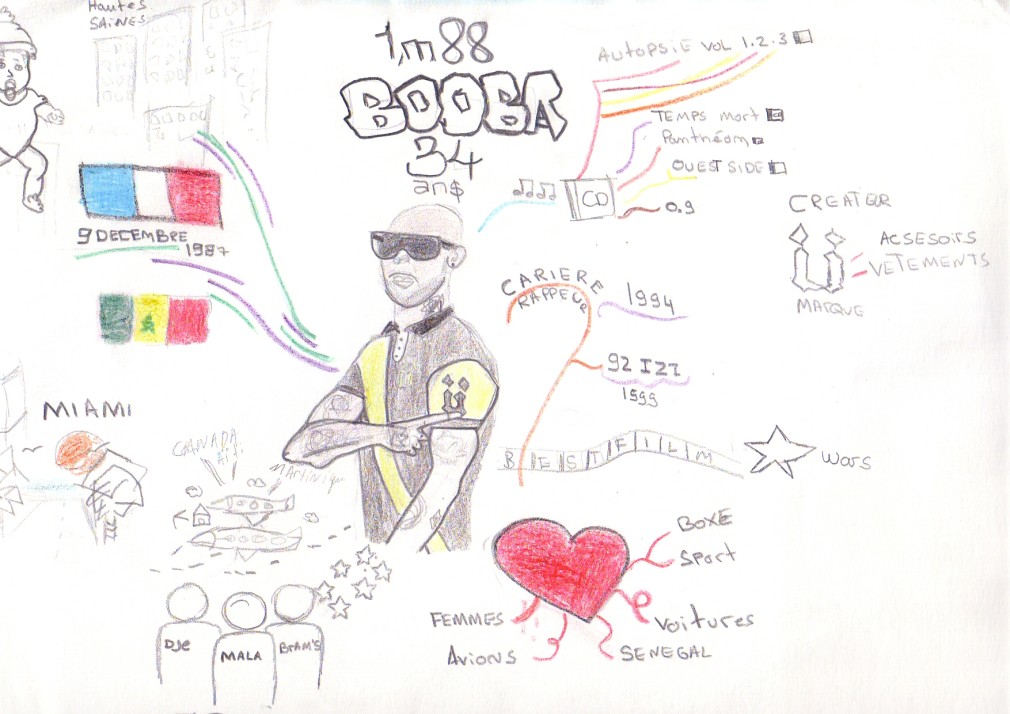 Hautes
SAINES
1m88
BOOBA
34
ans
AUTOPSIE VOL 1.2.3
TEMPS mort
Panthéon
OUEST SIDE
0.9
CD
CREATEUR
Ü
ACSESOIRS
VETEMENTS
MARQUE
9 DECEMBRE
1987
CARIERE
RAPPEUR
1994
92 IZZ
1999
ü
MIAMI
CANADA
MARTINIQUE
BESTFILM
Wars
BOXE
Sport
Voitures
SENEGAL
FEMMES
Avions
DJE
MALA
BRAM'S